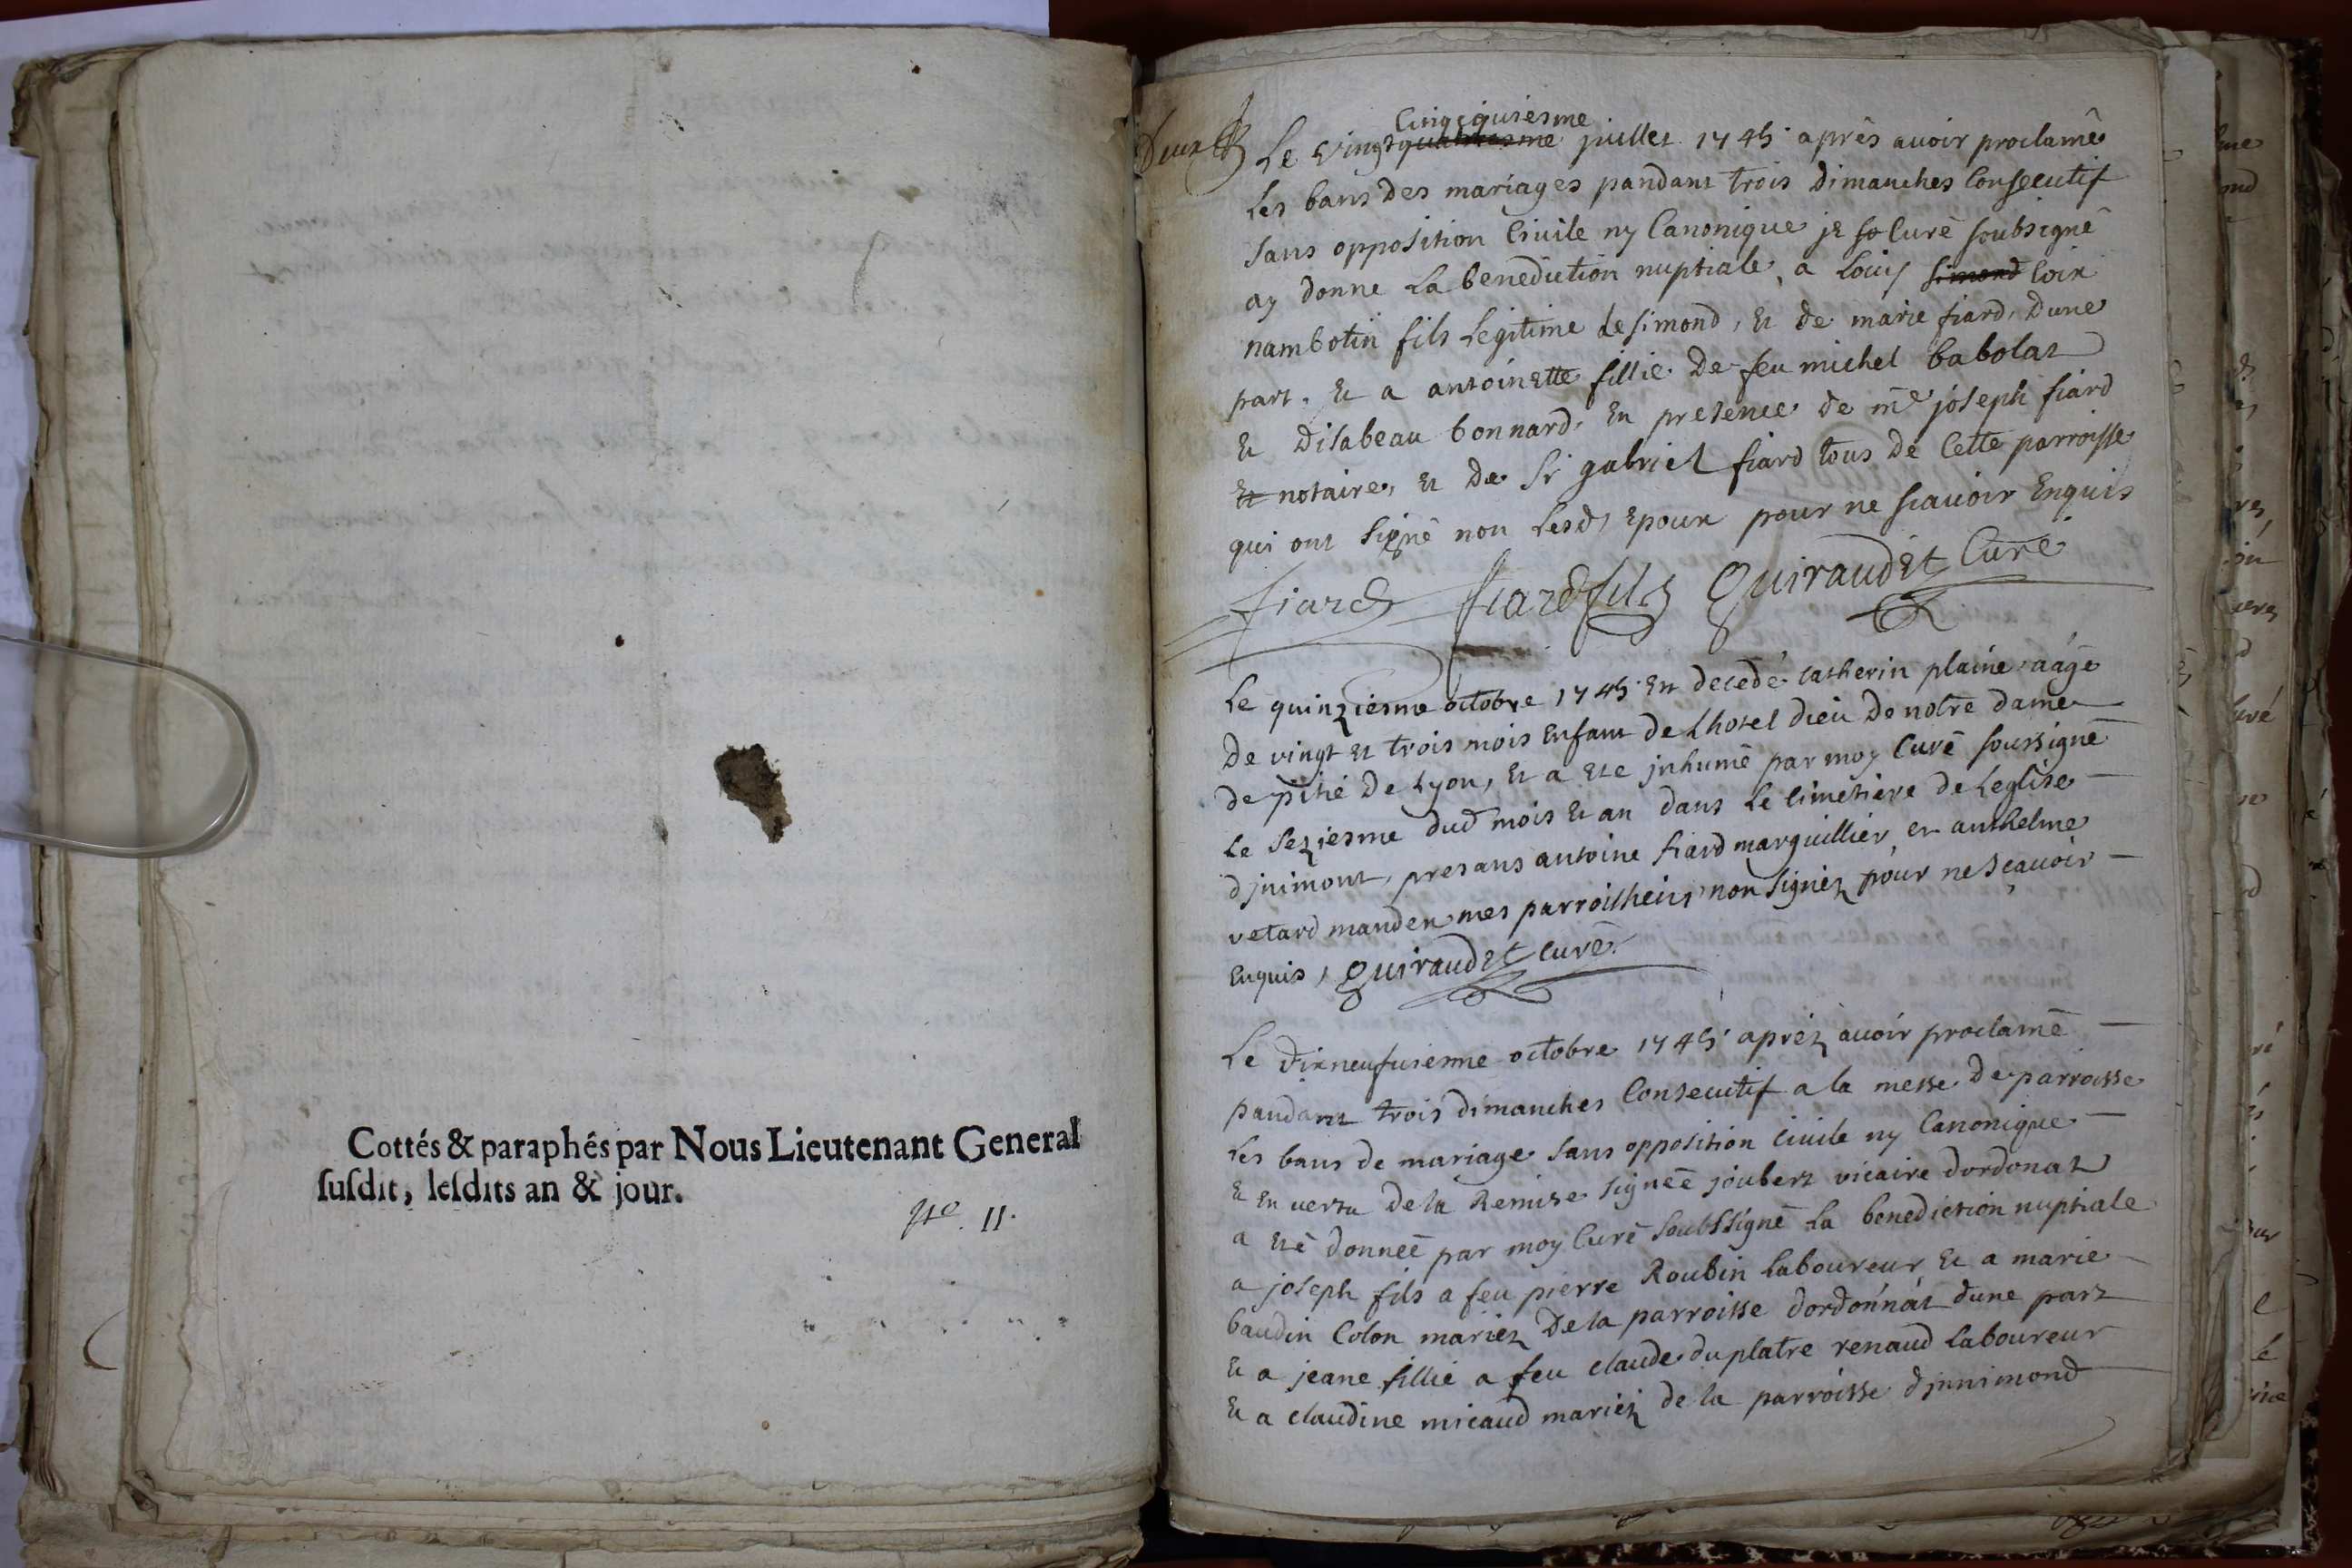 Cottés & paraphés par Nous Lieutenant General
susdit, lesdits an & jour.
Deux
Cinqquiesme
Le vingt quatriesme juillet 1745 après avoir proclamé
les bans des mariages pandant trois dimanches Consecutif
sans opposition Civile ny Canonique je so Curé soubsigné
ay donne La benediction nuptiale, a Louis simond Coix
nambotin fils Legitime de simond, et de marie fiard, dune
part. et a antoinette fillie de feu michel babolat
et disabeau bonnard, En presence de me joseph fiard
et notaire, et de sr gabriel fiard tous de Cette parroisse
qui ont signé non Lesd, epoux pour ne scavoir Enquis
fiard fiard fils Quiraudet Curé
Le quinziesme octobre 1745 est decedé catherin plaine aâgé
de vingt et trois mois Enfant de Lhotel dieu de notre dame
de pitié de Lyon, et a ete jnhumé par moy Curé soussigné
Le seziesme dud mois et an dans Le Cimetiere de Leglise
djnimont, presans antoine fiard marguillier, et anthelme
vetard manden mes parroisheins non signez pour ne sçavoir
Enquis, Quiraudet Curé
Le dixneufuiesme octobre 1745 aprez avoir proclamé
pandant trois dimanches Consecutif a la messe de parroisse
Les bans de mariage sans opposition Civile ny Canonique
et en vertu de la Remise signeé joubert vicaire dordonat
a eté donneé par moy Curé soubssigné La benediction nuptiale
a joseph fils a feu pierre Roubin Laboureur et a marie
baudin Colon mariez de la parroisse dordonnat dune part
et a jeane fillie a feu claude duplatre renaud Laboureur
et a claudine micaud mariez de la parroisse djnnimond